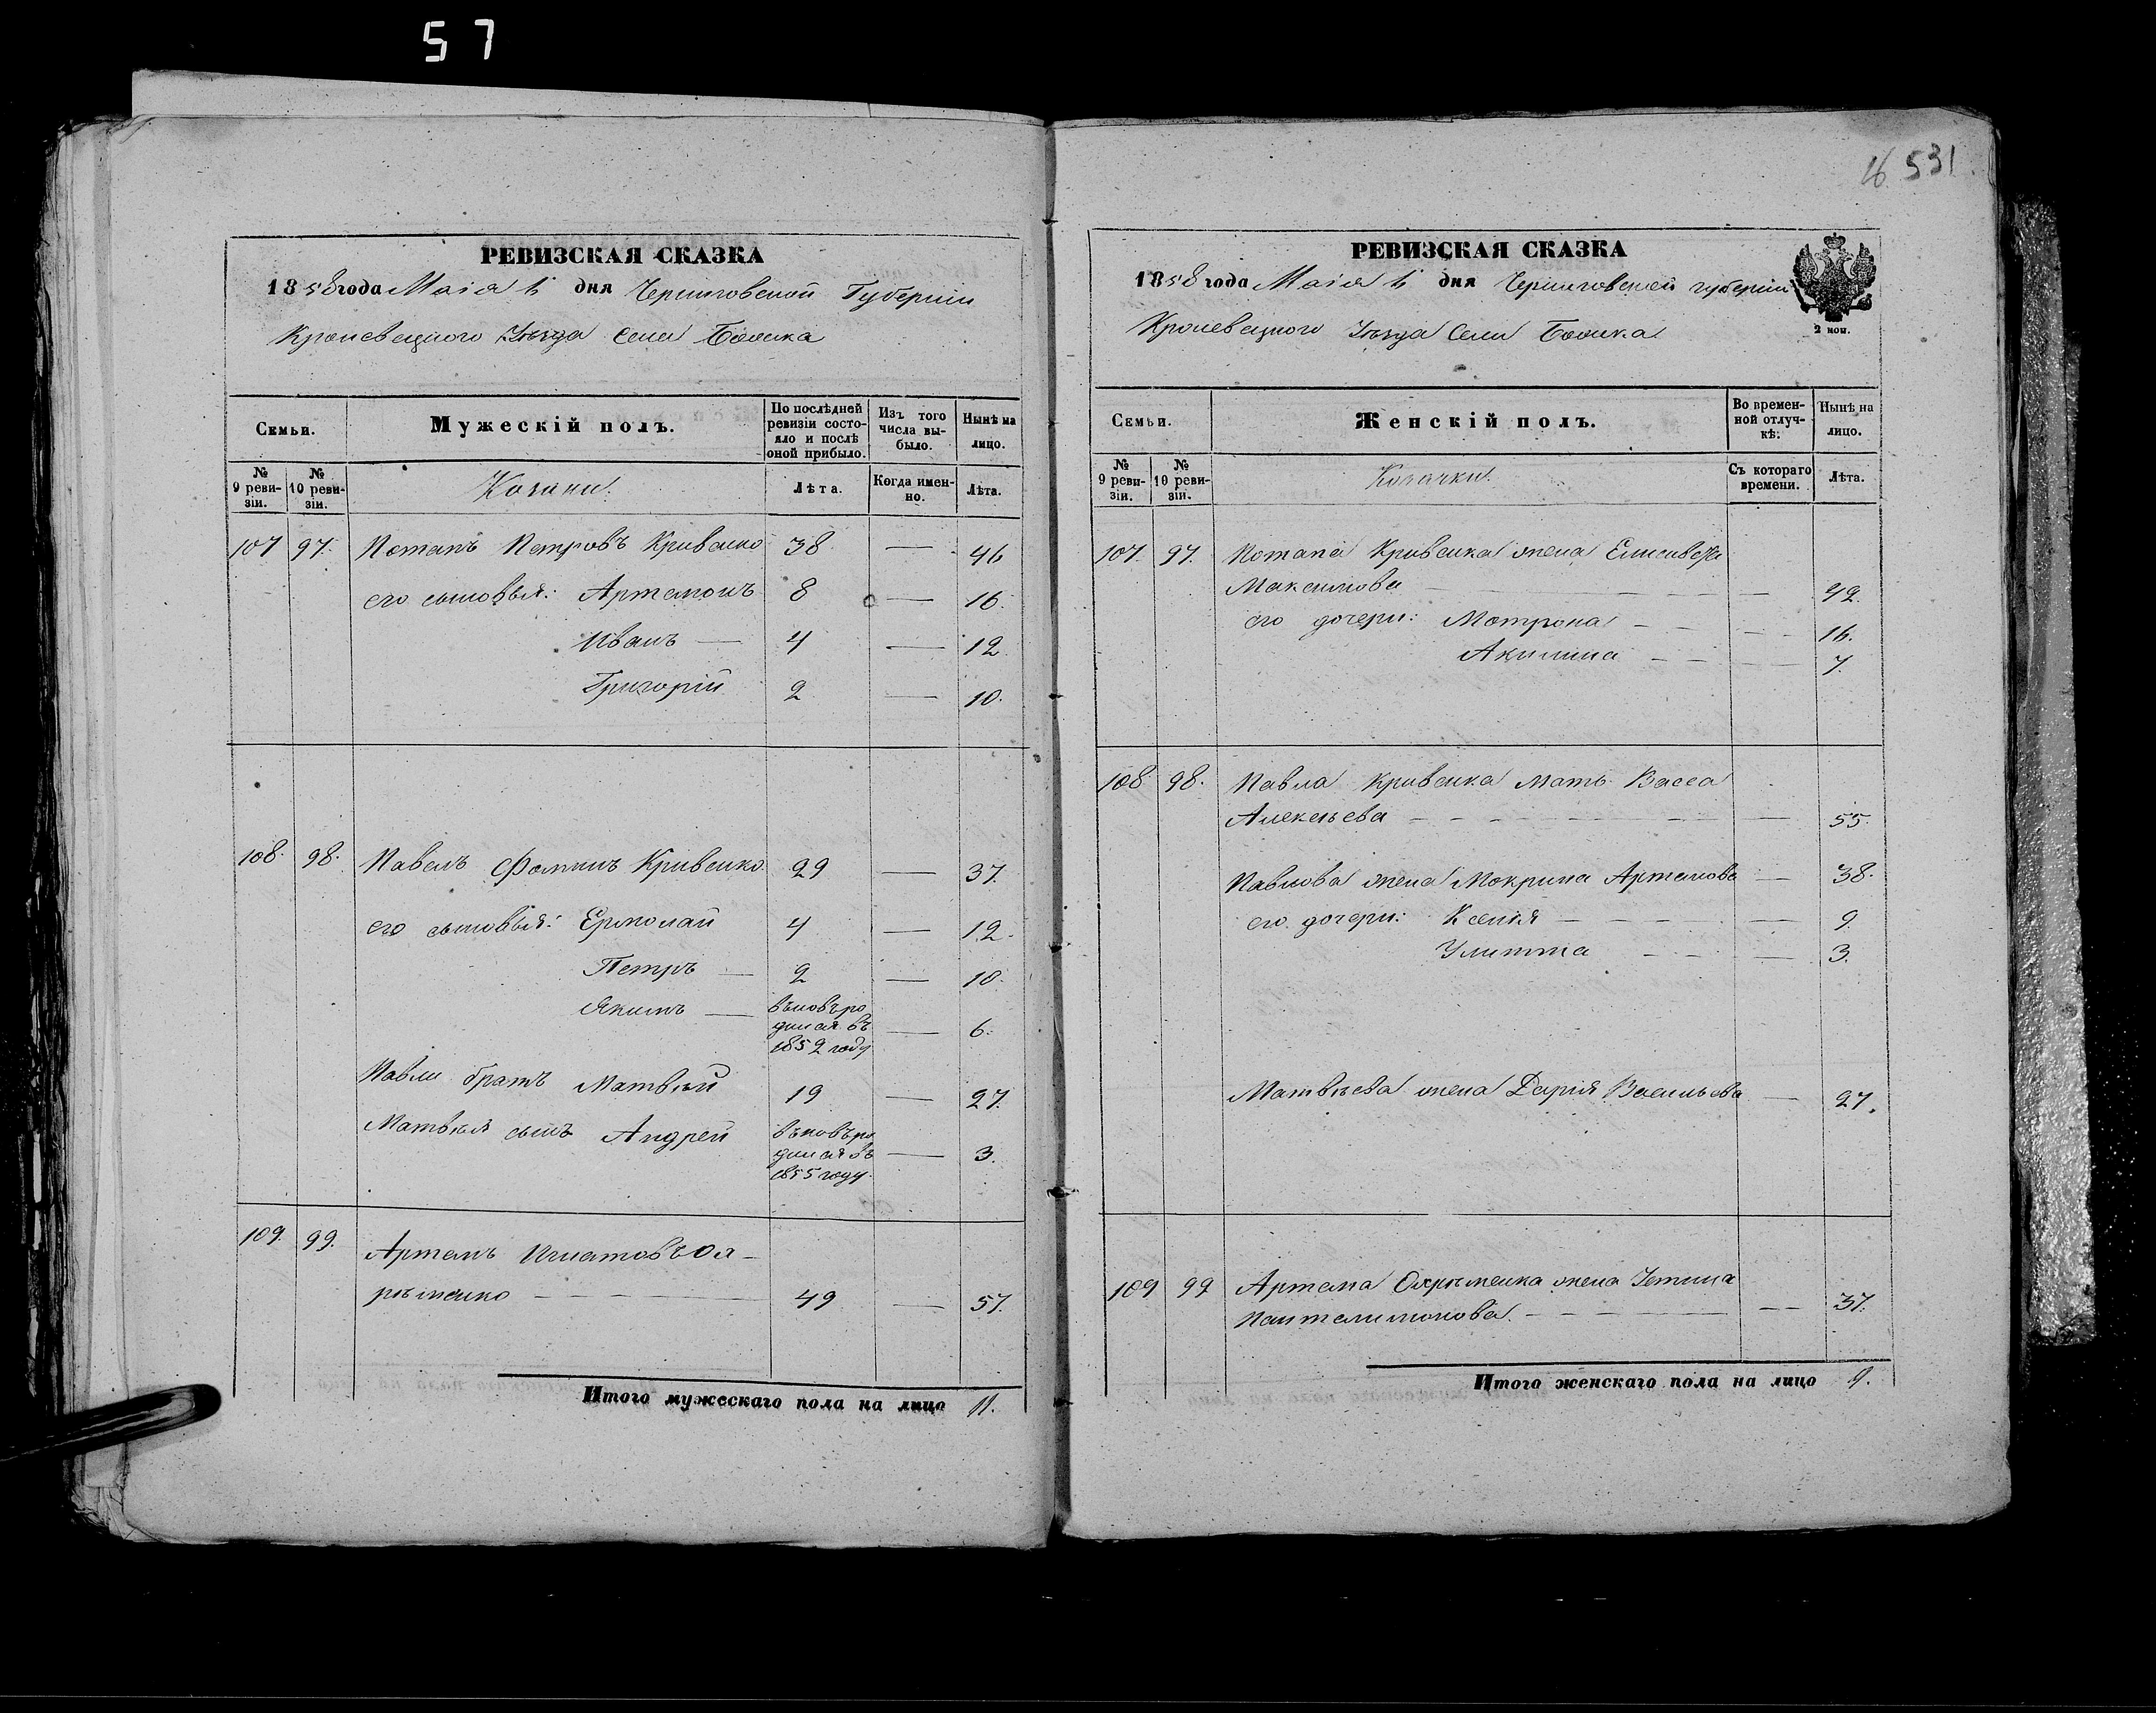 57
16 531
РЕВИЗСКАЯ СКАЗКА
1858 года Маія 1 дня Черниговской Губерніи
Кролевецкого Уѣзда Села
Семьи. Мужескій полъ. По послѣдней ревизіи состояло и послѣ оной прибыло. Изъ того числа выбыло. Нынѣ на лицо.
№ 9 ревизіи. № 10 ревизіи. Козаки. Лѣта. Когда именно. Лѣта.
107 97. Потапъ Петровъ Кривенко 38 — 46
его сыновья: Артемонъ 8 — 16.
Иванъ — 4 — 12
Григорій 2 — 10.
108. 98. Павелъ Фоминъ Кривенко 29 — 37.
его сыновья: Ермолай 4 — 12.
Петръ — 2 — 10.
Якимъ — вновь ро
дился въ — 6.
1852 году
Павла братъ Матвѣй 19 — 27.
Матвѣя сынъ Андрей вновь ро
дился въ — 3.
1855 году.
109. 99. Артемъ Игнатовъ Ох-
рѣменко — 49 — 57.
Итого мужескаго пола на лицо 11.
РЕВИЗСКАЯ СКАЗКА
1858 года Маія 1 дня Черниговской губерніи
2 коп.
Кролевецкого Уѣзда Села
Семьи. Женскій полъ. Во временной отлучкѣ. Нынѣ на лицо.
№ 9 ревизіи. № 10 ревизіи. Козачки. Съ котораго времени. Лѣта.
107. 97. Потапа Кривенка жена Елисавета
Максимова — 42.
его дочери: Мотрона — 16.
Акилина — 7.
108. 98. Павла Кривенка мать Васса
Алексѣева — 55.
Павлова жена Мокрина Артемова — 38.
его дочери: Ксенія — 9.
Улитта — 3.
Матвѣева жена Дарія Васильева — 27.
109 99 Артема Охрѣменка жена Устина
Пантелимонова. — 37.
Итого женскаго пола на лицо 9.